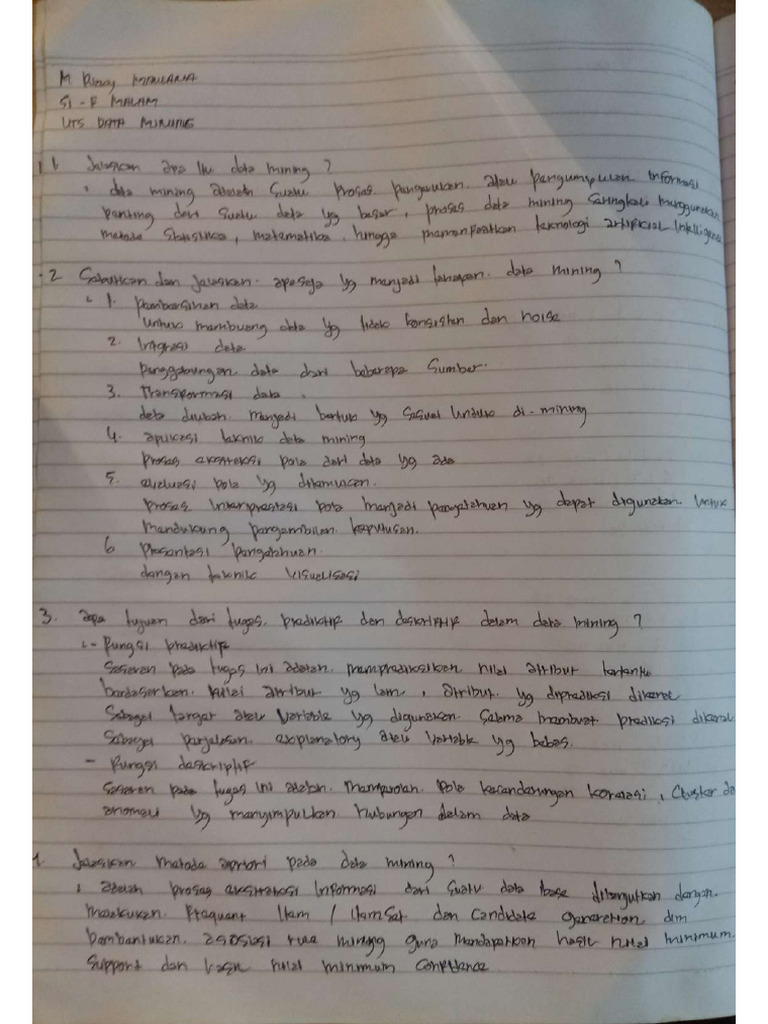 M Rizky MAULANA
SI - F MALAM
UTS DATA MINING
1. Jelaskan apa itu data mining ?
• data mining adalah suatu proses pengerukan atau pengumpulan informasi
penting dari suatu data yg besar, proses data mining seringkali menggunakan
metode statistika, matematika, hingga memanfaatkan teknologi artificial intelligence
2 Sebutkan dan jelaskan apa saja yg menjadi tahapan data mining ?
1. pembersihan data
untuk membuang data yg tidak konsisten dan noise
2. Integrasi data
penggabungan data dari beberapa sumber.
3. Transformasi data.
data diubah menjadi bentuk yg sesuai untuk di-mining
4. aplikasi teknik data mining
proses ekstraksi pola dari data yg ada
5. evaluasi pola yg ditemukan.
proses interprestasi pola menjadi pengetahuan yg dapat digunakan untuk
mendukung pengambilan keputusan.
6 Presentasi pengetahuan.
dengan teknik visualisasi
3. apa tujuan dari tugas prediktif dan deskriptif dalam data mining ?
- Fungsi prediktif
Sasaran pada tugas ini adalah memprediksikan nilai atribut tertentu
berdasarkan nilai atribut yg lain, atribut yg diprediksi dikenal
sebagai target atau variable yg digunakan selama membuat prediksi dikenal
sebagai penjelasan explanatory atau variable yg bebas.
- Fungsi deskriptif
Sasaran pada tugas ini adalah memperoleh pola kecenderungan korelasi, cluster da
anomali yg menyimpulkan hubungan dalam data
Jelaskan metode apriori pada data mining ?
• adalah proses ekstraksi informasi dari suatu data base dilanjutkan dengan
melakukan Frequent Item / Itemset dan Candidate generation dlm
pembentukan asosiasi rule mining guna mendapatkan hasil nilai minimum
support dan hasil nilai minimum confidence